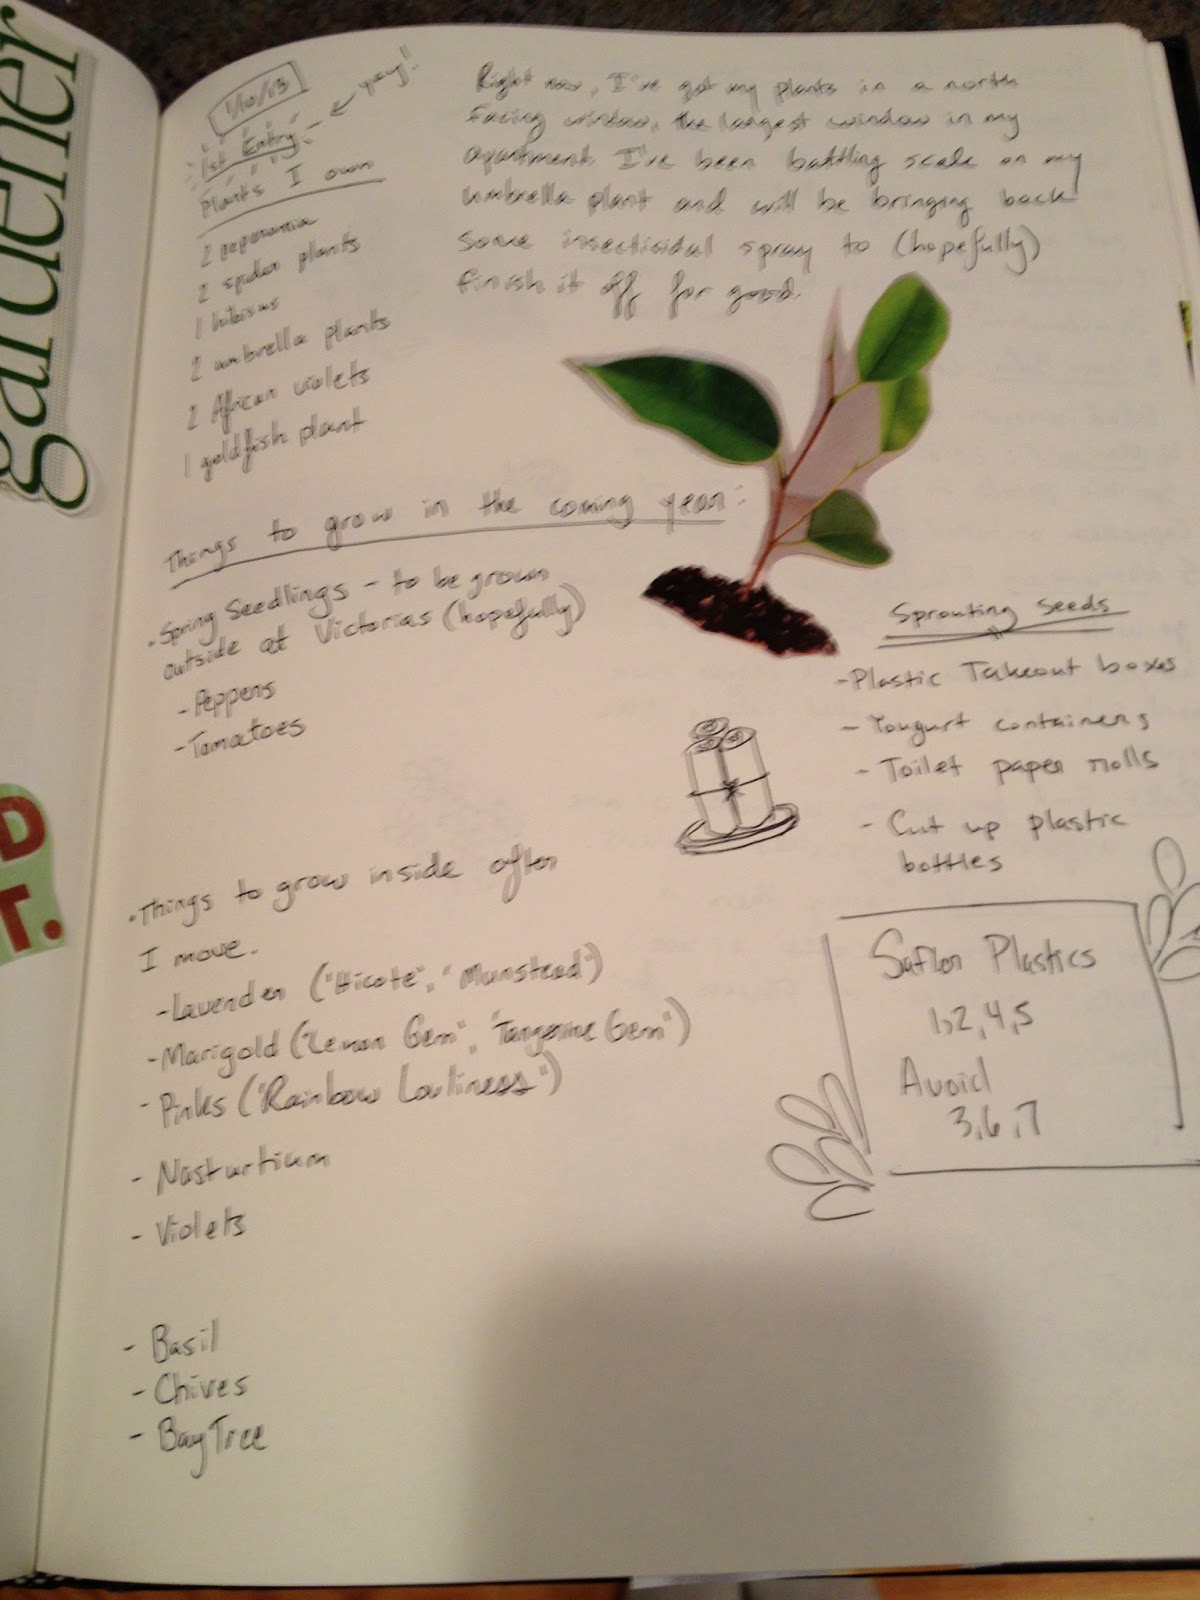 gardener
D
T.
1/10/13
1st Entry
yay!
Plants I own
2 peperomia
2 spider plants
1 hibiscus
2 umbrella plants
2 African violets
1 goldfish plant
Right now, I've got my plants in a north
facing window, the largest window in my
apartment. I've been battling scale on my
umbrella plant and will be bringing back
some insecticidal spray to (hopefully)
finish it off for good.
Things to grow in the coming year:
• Spring Seedlings - to be grown
outside at Victorias (hopefully)
- Peppers
- Tomatoes
Sprouting Seeds
- Plastic Takeout boxes
- Yougurt containers
- Toilet paper rolls
- Cut up plastic
bottles
• Things to grow inside after
I move.
- Lavender ("Hicote", "Munstead")
- Marigold ("Lemon Gem", "Tangerine Gem")
- Pinks ("Rainbow Lovliness")
- Nasturtium
- Violets
- Basil
- Chives
- Bay Tree
Safer Plastics
1,2,4,5
Avoid
3,6,7